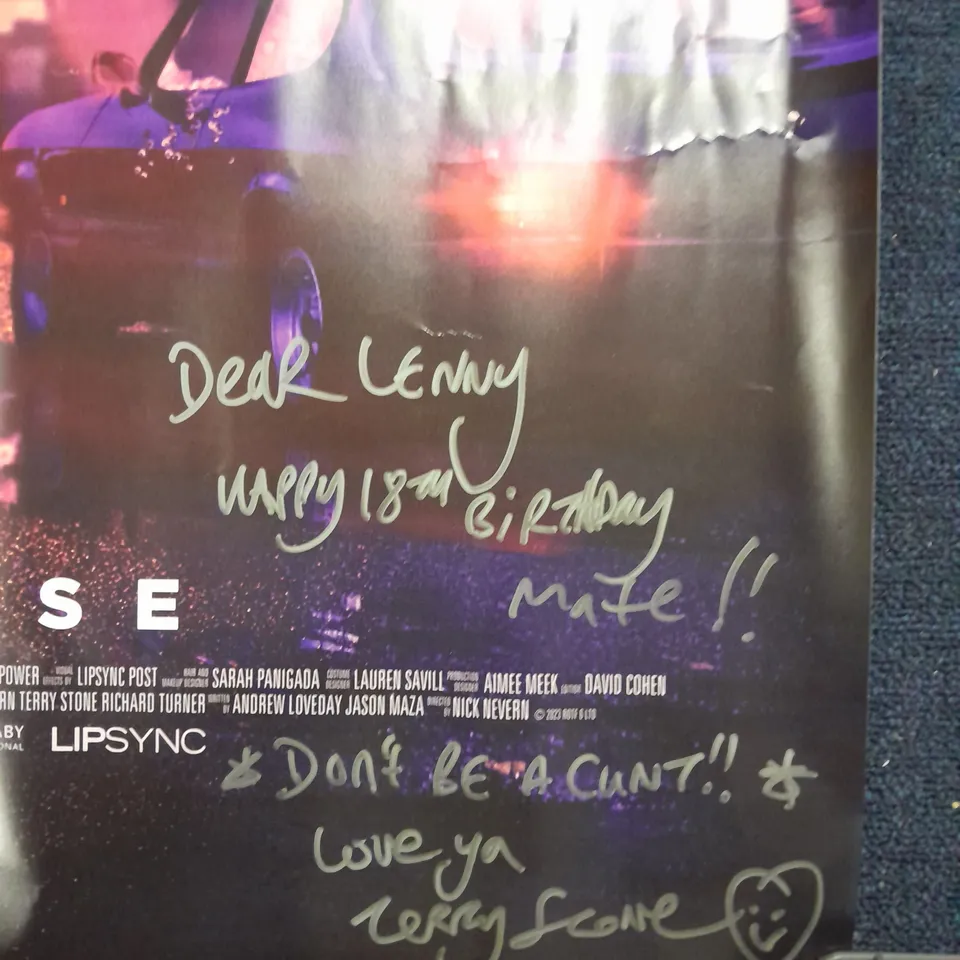 Dear Lenny
Happy 18th Birthday
Mate!!
S E
POWER VISUAL EFFECTS BY LIPSYNC POST HAIR AND MAKEUP DESIGNER SARAH PANIGADA COSTUME DESIGNER LAUREN SAVILL PRODUCTION DESIGNER AIMEE MEEK EDITOR DAVID COHEN
RN TERRY STONE RICHARD TURNER WRITTEN BY ANDREW LOVEDAY JASON MAZA DIRECTED BY NICK NEVERN © 2023 ROTF 6 LTD
ABY
ONAL
LIPSYNC
* Don't BE A CUNT!! *
Love ya
Terry Stone